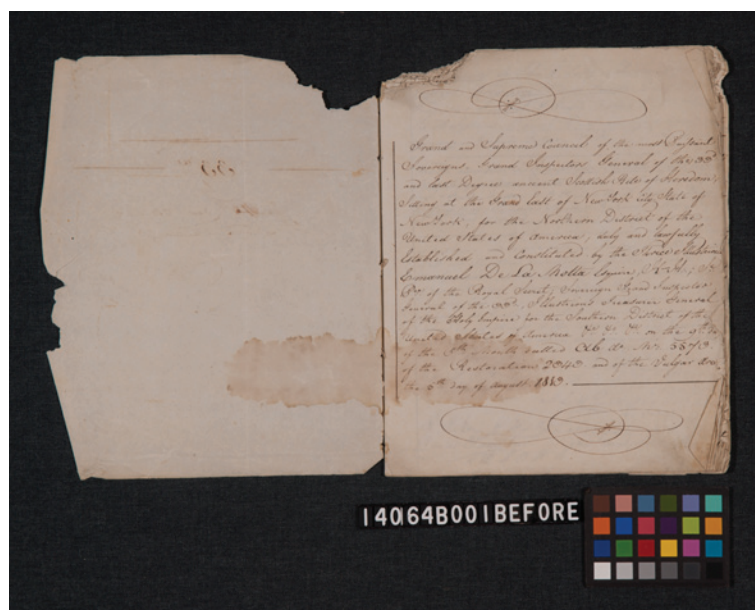 33
Grand and Supreme Council of the most Puissant
Sovereigns, Grand Inspectors General of the 33d
and last Degree ancient Scottish Rite of Heredom
Sitting at the Grand East of New York City, State of
New York, for the Northern District of the
United States of America, duly and lawfully
Established and Constituted by the Thrice Illustrious
Emanuel De La Motta Esquire, K—H.
of the Royal Secret, Sovereign Grand Inspector
General of the 33d, Illustrious Treasurer General
of the Holy Empire for the Southern District of the
United States of America on the 9th
of the Month called Ab Ao Mi 5573
of the Restoration 2343 and of the Vulgar Era
the 5th day of August 1813.
140164B001BEFORE